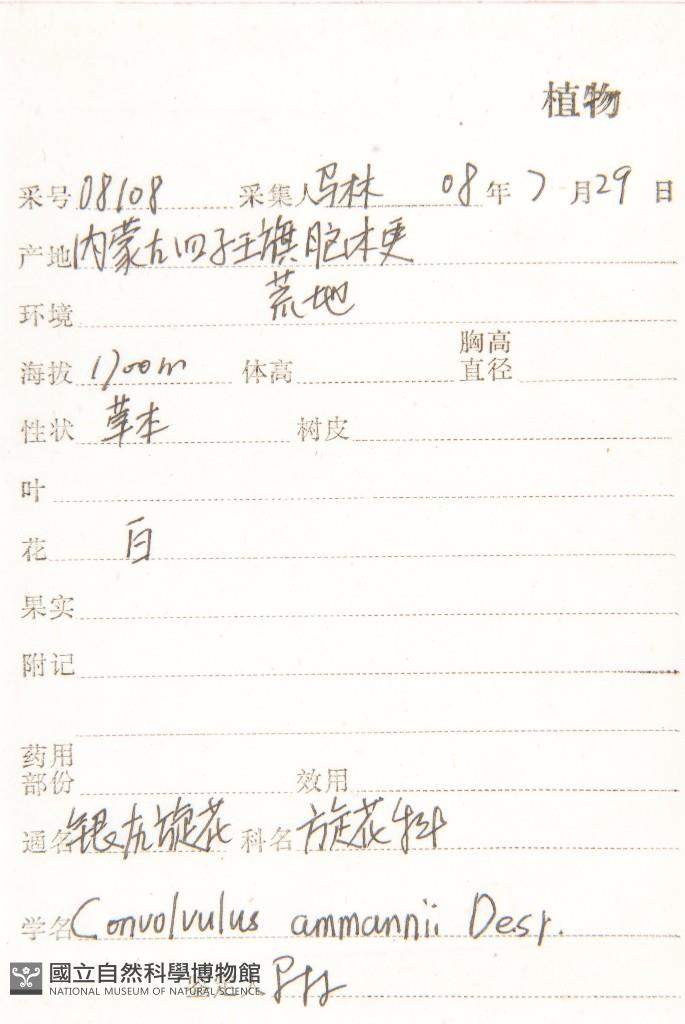 植物
采号 08108 采集人 马林 08 年 7 月 29 日
产地 内蒙古四子王旗脑木更
环境 荒地
海拔 1700m 体高 胸高直径
性状 草本 树皮
叶
花 白
果实
附记
药用部份 效用
通名 银灰旋花 科名 旋花科
学名 Convolvulus ammannii Desr.
國立自然科學博物館
NATIONAL MUSEUM OF NATURAL SCIENCE